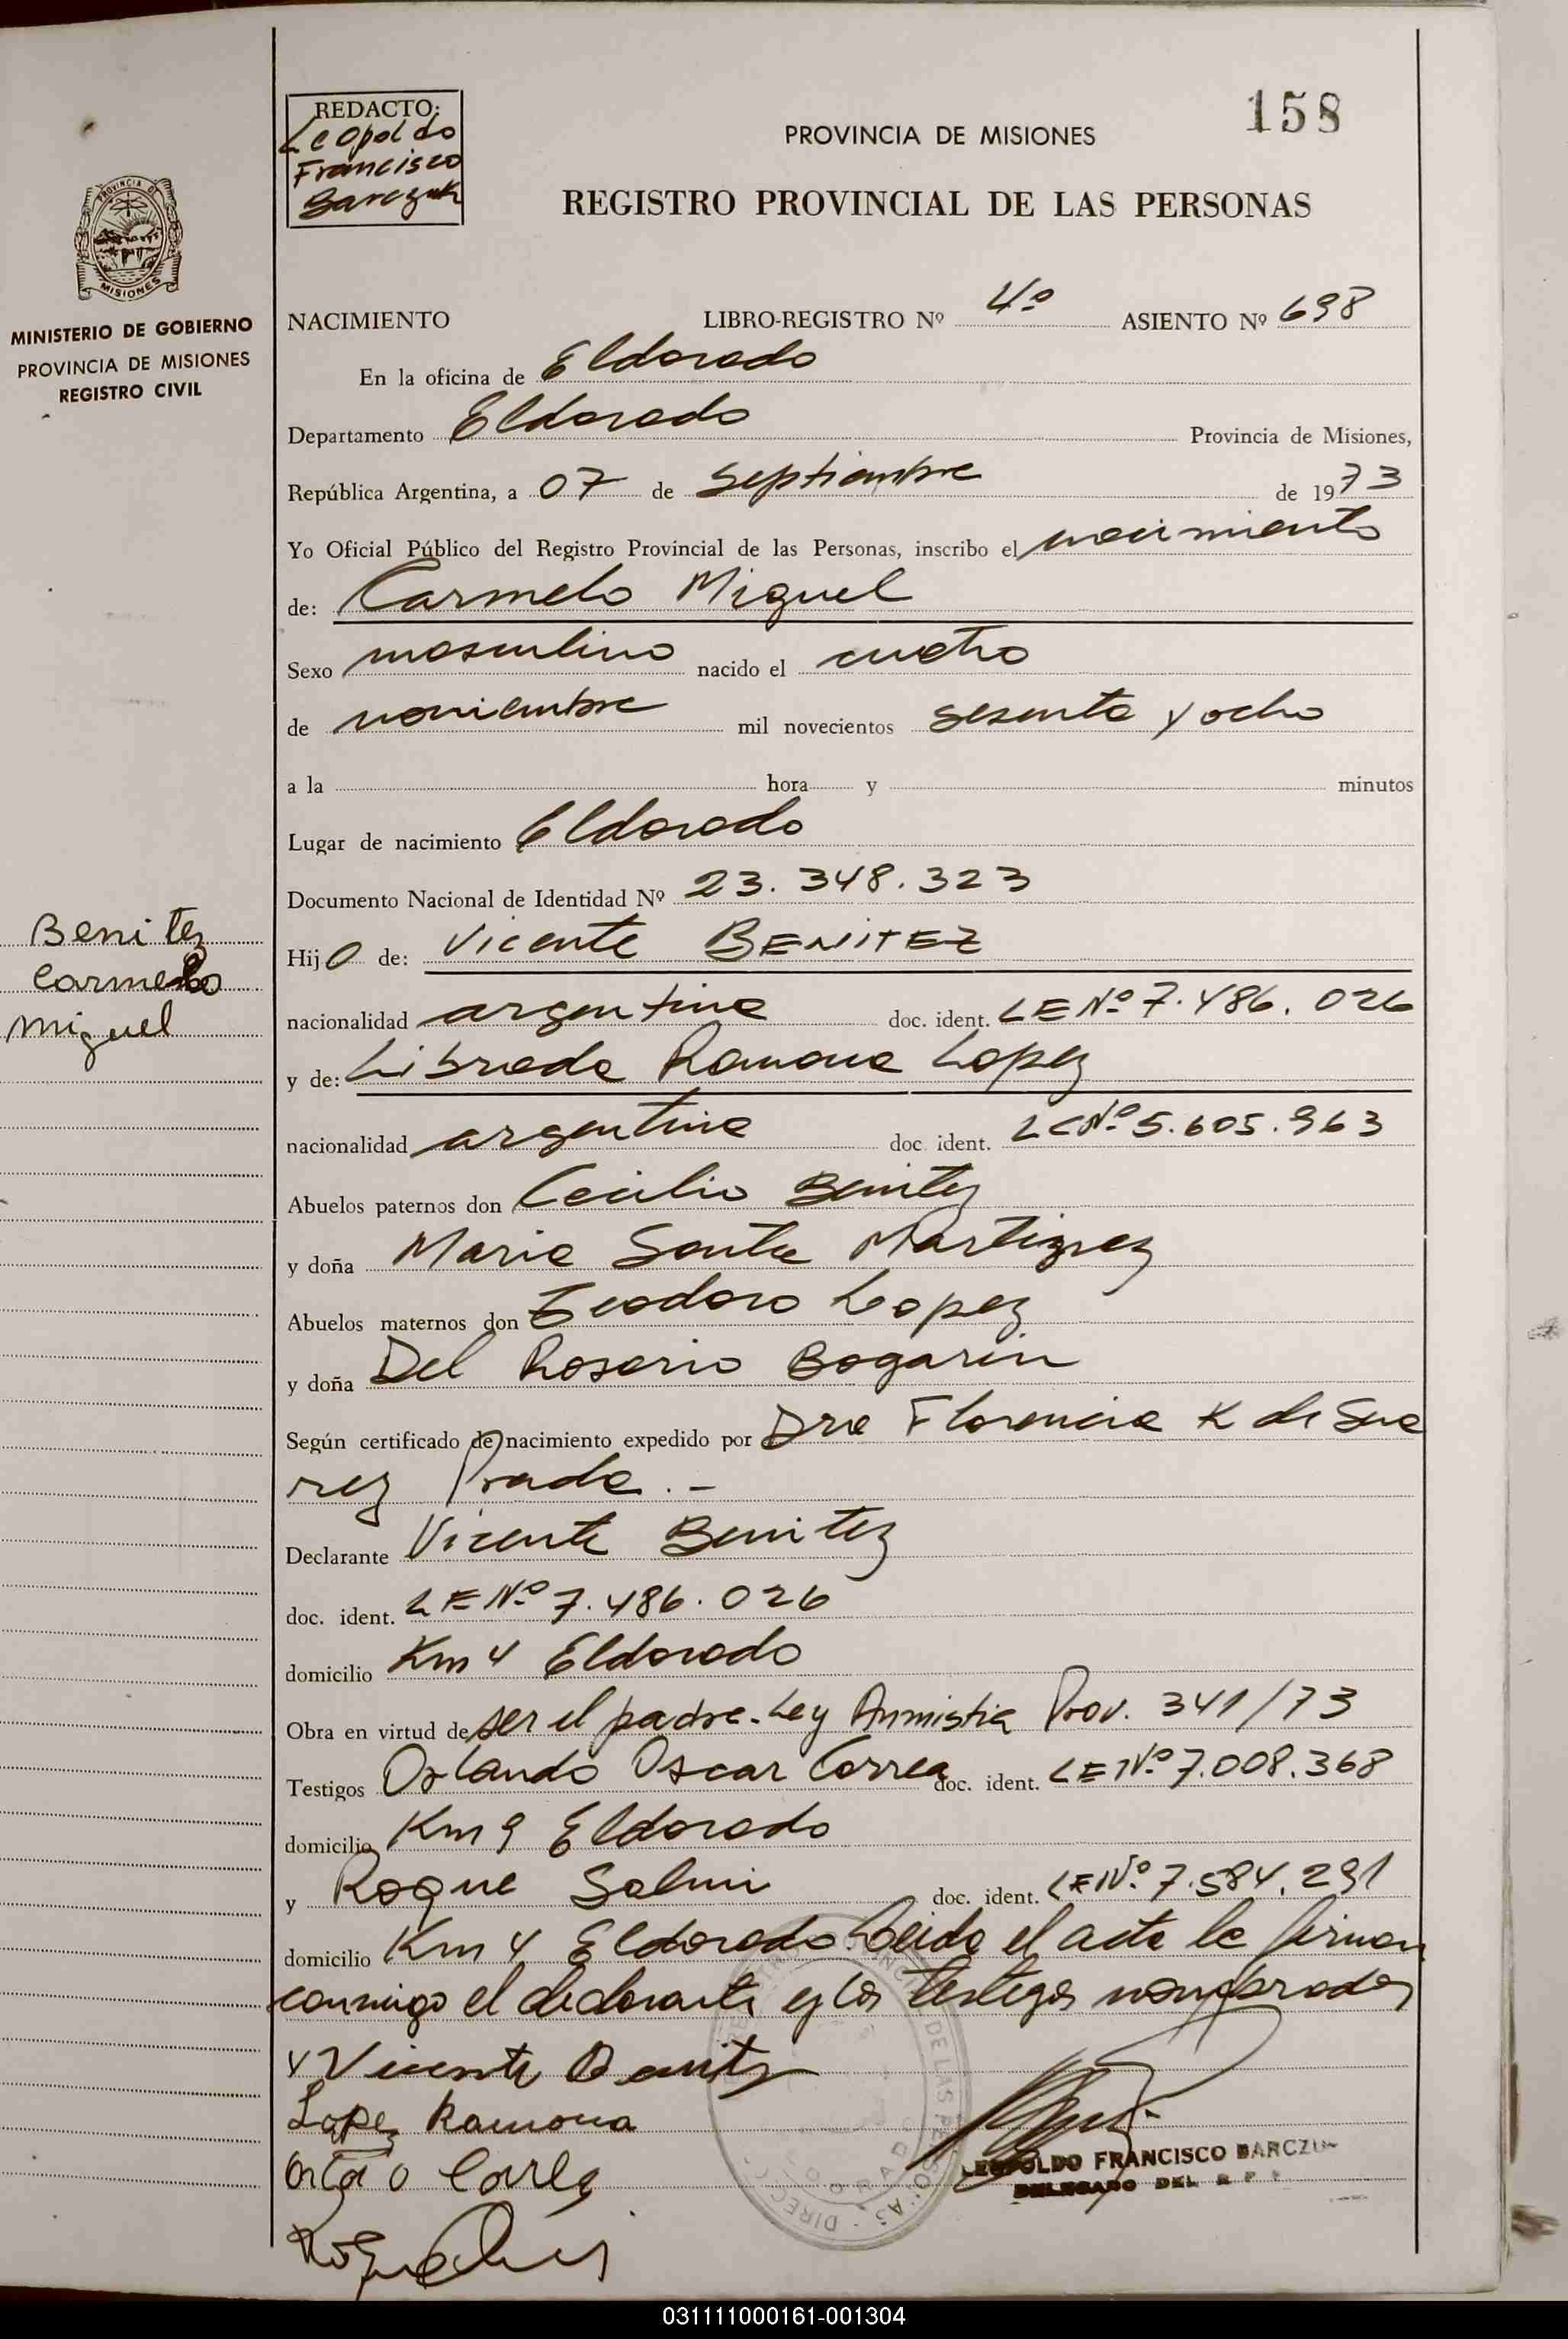 REDACTO:
Leopoldo
Francisco
Barczuk
158
PROVINCIA DE MISIONES
REGISTRO PROVINCIAL DE LAS PERSONAS
PROVINCIA DE
MISIONES
MINISTERIO DE GOBIERNO
PROVINCIA DE MISIONES
REGISTRO CIVIL
NACIMIENTO LIBRO-REGISTRO Nº 4º ASIENTO Nº 698
En la oficina de Eldorado
Departamento Eldorado Provincia de Misiones,
República Argentina, a 07 de septiembre de 1973
Yo Oficial Público del Registro Provincial de las Personas, inscribo el nacimiento
de: Carmelo Miguel
Sexo masculino nacido el cuatro
de noviembre mil novecientos sesenta y ocho
a la hora y minutos
Lugar de nacimiento Eldorado
Documento Nacional de Identidad Nº 23.348.323
Benitez
Carmelo
Miguel
Hijo de: Vicente BENITEZ
nacionalidad argentina doc. ident. LE Nº 7.486.026
y de: Librada Ramona Lopez
nacionalidad argentina doc. ident. LC Nº 5.605.963
Abuelos paternos don Cecilio Benitez
y doña Maria Santa Martinez
Abuelos maternos don Teodoro Lopez
y doña Del Rosario Bogarin
Según certificado de nacimiento expedido por Dra Florencia K de Sua
rez Prada.-
Declarante Vicente Benitez
doc. ident. LE Nº 7.486.026
domicilio Km 4 Eldorado
Obra en virtud de ser el padre-Ley Anmistia Prov. 341/73
Testigos Orlando Oscar Correa doc. ident. LE Nº 7.008.368
domicilio Km 9 Eldorado
y Roque Salmi doc. ident. LE Nº 7.584.291
domicilio Km 4 Eldorado. Leida el acta la firman
conmigo el declarante y los testigos nombrados
Vicente Benitez
Lopez Ramona
LEOPOLDO FRANCISCO BARCZUK
DELEGADO DEL R P P
031111000161-001304